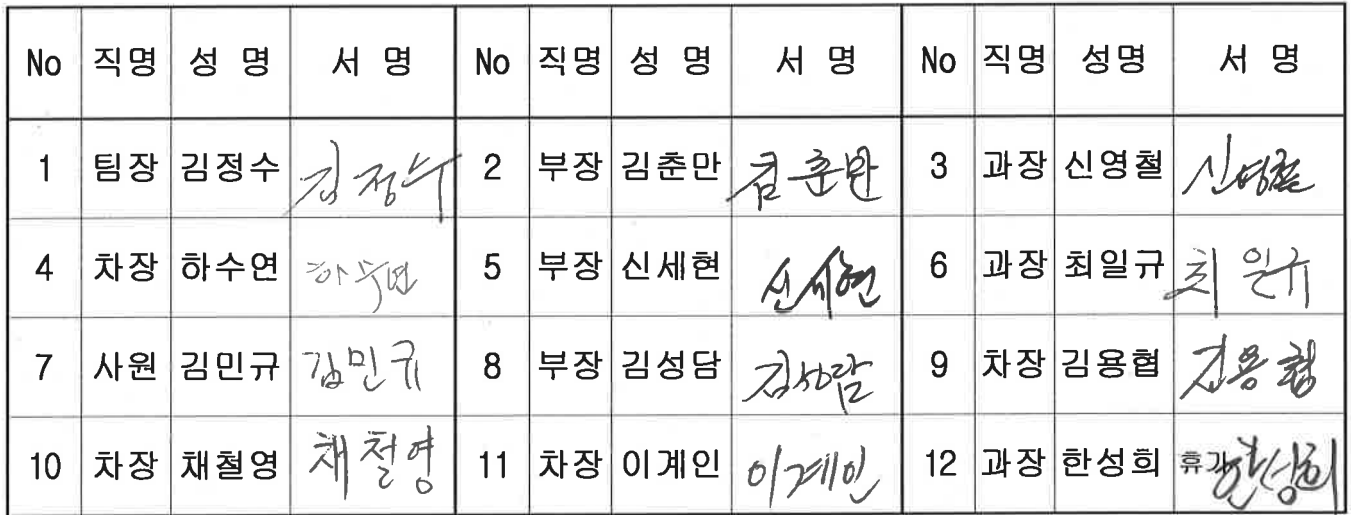 No 직명 성 명 서 명 No 직명 성 명 서 명 No 직명 성명 서 명
1 팀장 김정수 김정수 2 부장 김춘만 김춘만 3 과장 신영철 신영철
4 차장 하수연 하수연 5 부장 신세현 신세현 6 과장 최일규 최일규
7 사원 김민규 김민규 8 부장 김성담 김성담 9 차장 김용협 김용협
10 차장 채철영 채철영 11 차장 이계인 이계인 12 과장 한성희 휴가 한성희